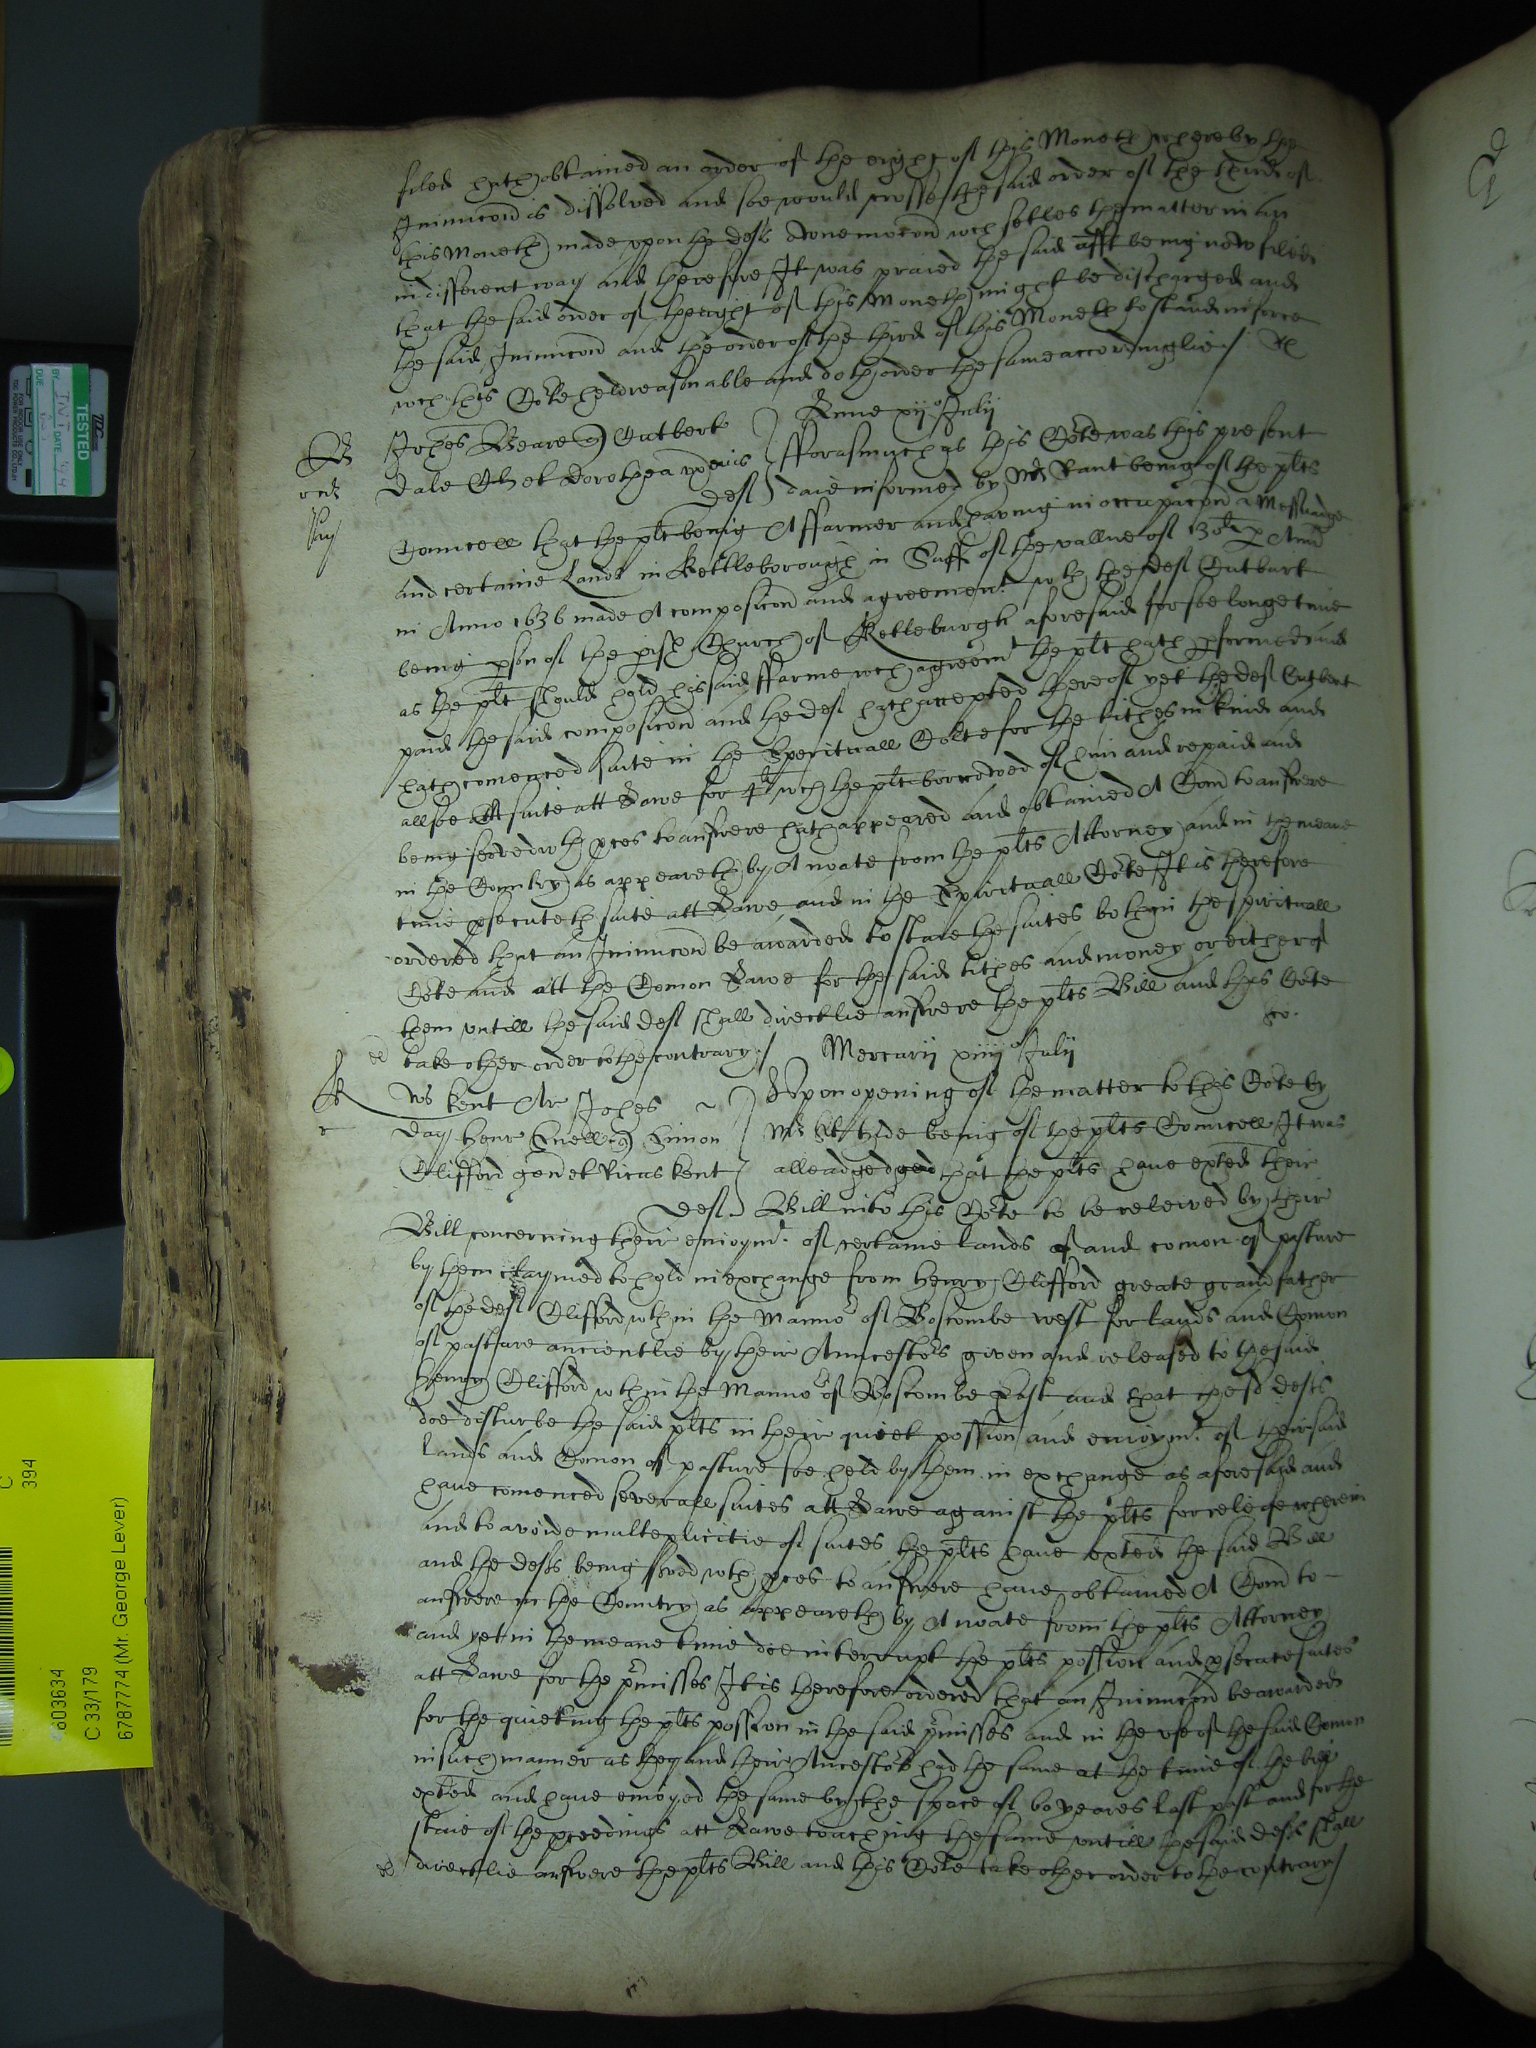 filed hath obtained an order of the eight of this Moneth whereby the
Iniunccon is dissolved and soe would crosse the said order of the third of
this Moneth made vpon the defts owne mocon wch settles the matter in an
indifferent way and therefore It was praied the said afft being now filed
that the said order of the eight of this Moneth might be discharged and
the said Iniunccon and the order of the third of this Moneth to stand in force
wch this Cort held reasonable and doth order the same accordinglie /
Lune xij o Julij
Johes Beare Cutbert
Dale et Dorothea
Def
Forasmuch as this Corte was this present
daie informed by Mr Rant being of the plts
Councell that the plt being A Farmer and having in occupacon a Messuage
and certaine Lands in Kettleborough in Suff of the vallue of 130li p Ann
in Anno 1636 made A composicon and agreement wth the def Cutbart
being pson of the pish Church of Ketleburgh aforesaid for soe longe time
as the plt should hold his said Farme wch agreemt the plt hath pformed and
paid the said composicon and the def hath accepted thereof yet the def Cutbert
hath comenced suite in the Sperituall Corte for the tithes in kind and
allsoe att suite att Lawe for 4li wch the plt borrowed of him and repaid and
being served wth pces to answere hath appeared and obtained A Com to answere
in the Country as appeareth by A noate from the plts Attorney and in the meane
time psecuteth suite att Lawe and in the Spirituall Corte It is therefore
ordered that an Iniunccon be awarded to staie the suites both in the spirituall
Corte and att the Comon Lawe for the said tithes and money or either of
them vntill the said def shall directlie answere the plts Bill and this Corte
take other order to the contrary /
Mercurij xiiij o Julij
Ws Kent Ar Johes
Day Henr Simon
Clifford gen et Kent
Def
Vpon opening of the matter to this Corte by
Mr Hide being of the plts Councell It was
alleadged that the plts have exted their
Bill into this Corte to be releived by their
Bill concerning their enioymt of certaine lands and comon of pasture
by them claymed to hold in exchange from Henry Clifford greate grandfather
of the def Clifford wthin the Mannor of Boscombe west for lands and Comon
of pasture ancientlie by their Auncestors given and released to the said
Henry Clifford wthin the Mannor of Boscombe East and that the sd defts
doe disturbe the said plts in their quiet possion and enioymt of their said
lands and Comon of pasture soe held by them in exchange as aforesaid and
haue comenced severall suites att Lawe against the plts for releife wherein
and to avoide multeplicitie of suites the plts haue exted the said Bill
and the defts being served wth pces to answere haue obtained A Com to
answere in the Country as appeareth by A noate from the plts Attorney
and yet in the meane time doe interrupt the plts possion and psecute suites
att Lawe for the pmisses It is therefore ordered that an Iniunccon be awarded
for the quieting the plts possion in the said pmisses and in the vse of the said Comon
in such manner as they and their Ancestors had the same at the time of the bill
exted and haue enioyed the same by the space of 60 yeares last past and for the
staie of the pceedings att Lawe touching the same vntill the said defts shall
directlie answere the plts Bill and this Corte take other order to the contrary /
TESTED
BY
DATE
DUE
C
394
803634
C 33/179
6787774 (Mr. George Lever)